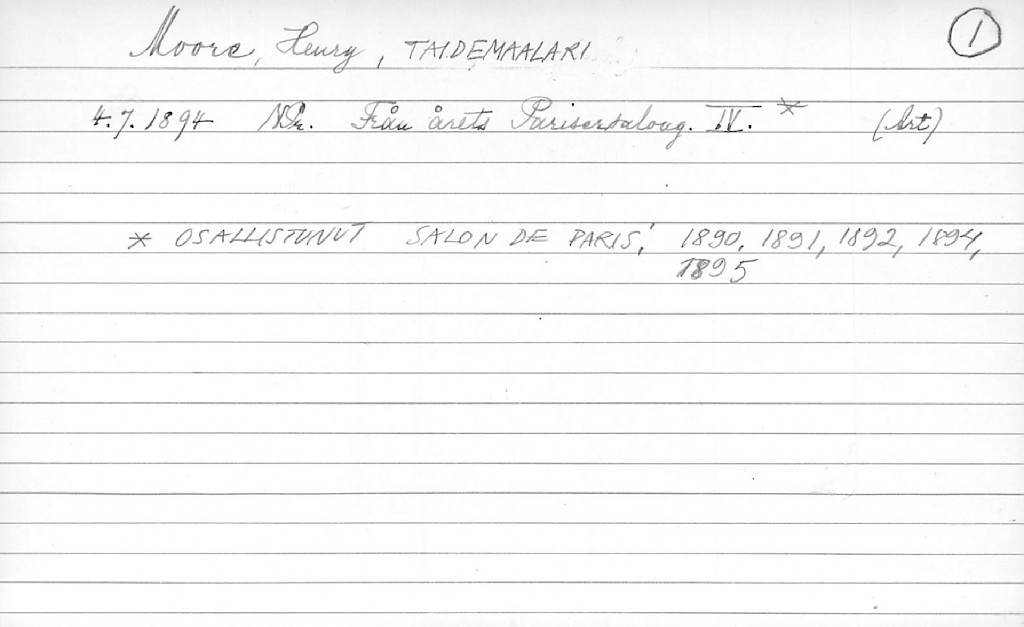 Moore, Henry, TAIDEMAALARI
1
4.7.1894 NPr. Från årets Parisersalong. IV. * (Art)
* OSALLISTUNUT SALON DE PARIS; 1890, 1891, 1892, 1894,
1895